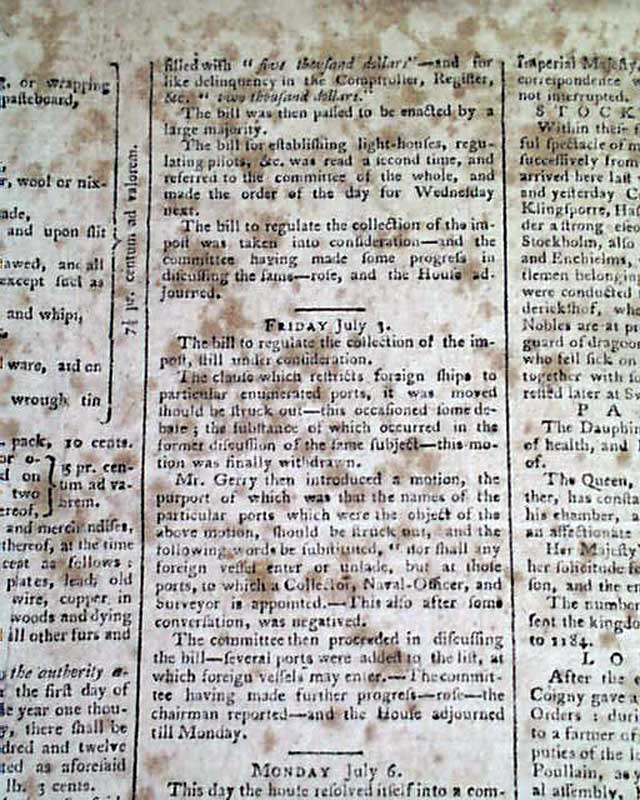 g, or wrapping
pasteboard,
r, wool or nix-
ade,
and upon slit
awed, and all
except such as
and whips,
ware, and on
wrough tin
7½ pr. centum ad valorem.
pack, 10 cents.
or o-
d on
two
ereof,
15 pr. cen-
tum ad va-
lorem.
and merchandises,
thereof, at the time
cept as follows :
plates, lead, old
wire, copper in
woods and dying
all other furs and
the authority a-
the first day of
e year one thou-
y, there shall be
dred and twelve
ted as aforesaid
lb. 3 cents.
filled with “ five thousand dollars”—and for
like delinquency in the Comptroller, Register,
&c. “ two thousand dollars.”
The bill was then passed to be enacted by a
large majority.
The bill for establishing light-houses, regu-
lating pilots, &c. was read a second time, and
referred to the committee of the whole, and
made the order of the day for Wednesday
next.
The bill to regulate the collection of the im-
post was taken into consideration—and the
committee having made some progress in
discussing the same—rose, and the House ad-
journed.
FRIDAY July 3.
The bill to regulate the collection of the im-
post, still under consideration.
The clause which restricts foreign ships to
particular enumerated ports, it was moved
should be struck out—this occasioned some de-
bate ; the substance of which occurred in the
former discussion of the same subject—this mo-
tion was finally withdrawn.
Mr. Gerry then introduced a motion, the
purport of which was that the names of the
particular ports which were the object of the
above motion, should be struck out, and the
following words be substituted, “ nor shall any
foreign vessel enter or unlade, but at those
ports, to which a Collector, Naval-Officer, and
Surveyor is appointed.—This also after some
conversation, was negatived.
The committee then proceeded in discussing
the bill—several ports were added to the list, at
which foreign vessels may enter.—The commit-
tee having made further progress—rose—the
chairman reported—and the House adjourned
till Monday.
MONDAY July 6.
This day the house resolved itself into a com-
Imperial Majesty,
correspondence w
not interrupted.
S T O C K
Within these f
ful spectacle of m
successively from
arrived here last
and yesterday C
Klingsporre, Ha
der a strong e
Stockholm, also
and Enchielms,
tlemen belonging
were conducted
dericksthof, whe
Nobles are at p
guard of dragoo
who fell sick on
together with
retied later at Sw
P A
The Dauphin
of health, and
of.
The Queen,
ther, has consta
his chamber, a
an affectionate
Her Majesty
her solicitude fo
son, and the en
The number
sent the kingdo
to 1184.
L O
After the
Coigny gave a
Orders : duri
to a farmer of
puties of the
Poullain, as
al assembly,